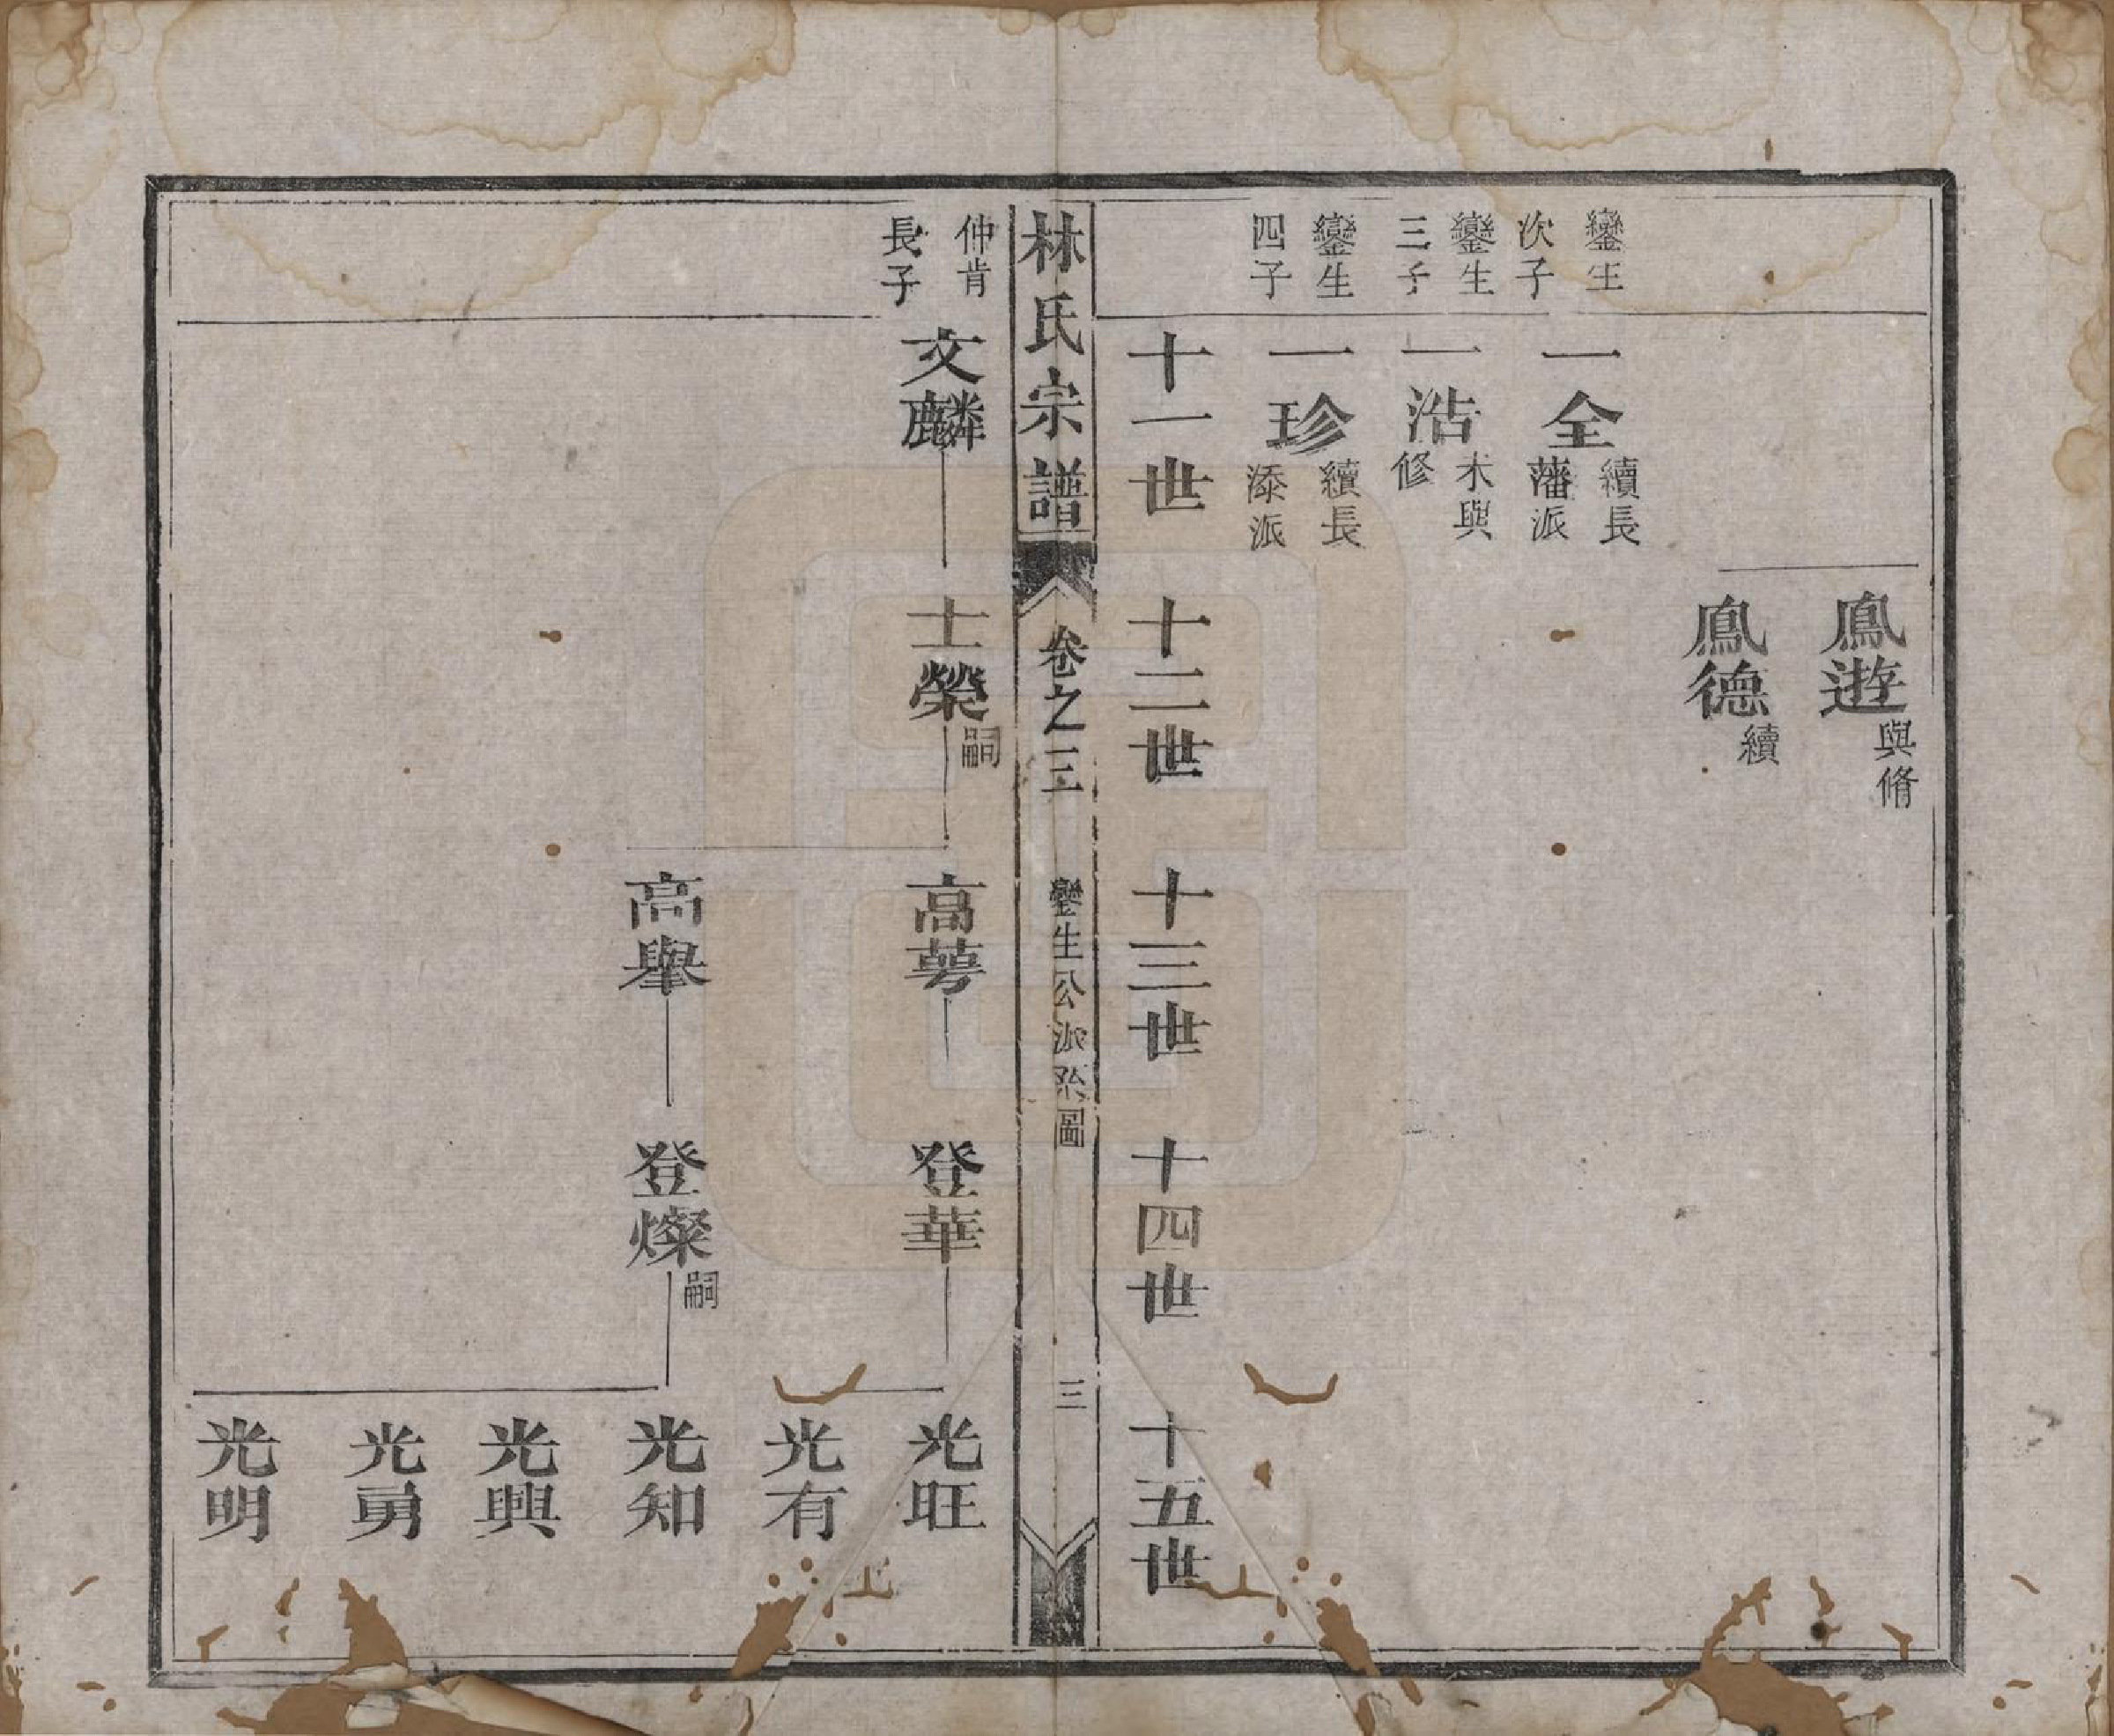 鳳遊
與脩
鳳德
續
鑾生
次子
一全
續長
藩派
鑾生
三子
一浩
未與
修
鑾生
四子
一珍
續長
添派
十一世
十二世
十三世
十四世
十五世
林氏宗譜
卷之三
鑾生公派系圖
三
仲肯
長子
文麟
士榮
嗣
高萼
登華
光旺
光有
高舉
登燦
嗣
光知
光興
光勇
光明